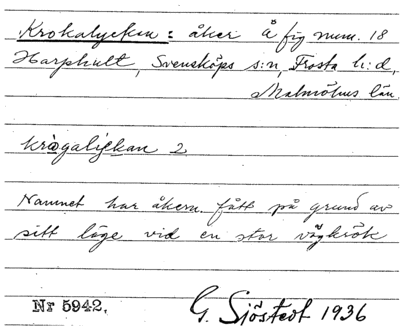 Krokalyckan: åker å fig num. 18
Harphult, Svensköps s:n, Frosta h:d,
Malmöhus län.
krògalýckan 2
Namnet har åkern fått på grund av
sitt läge vid en stor vägkrök
Nr 5942.
G. Sjöstedt 1936